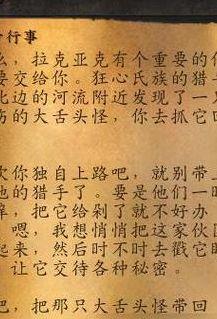 行事
么，拉克亚克有个重要的
要交给你。狂心氏族的猎
北边的河流附近发现了一
伤的大舌头怪，你去抓它
欢你独自上路吧，就别带上
他的猎手了。要是他们一
犋，把它给剁了就不好办
嗯，我想悄悄把这家伙
起来，然后时不时去戳它
让它交待各种秘密。
吧，把那只大舌头怪带回